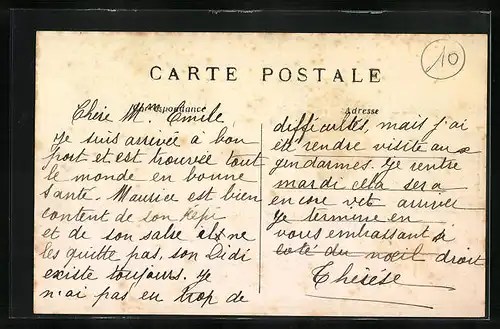 10
CARTE POSTALE
Correspondance
Adresse
Chère Mme Emile,
Je suis arrivée à bon
port et est trouvée tout
le monde en bonne
santé. Maurice est bien
content de son képi
et de son sabre il ne
les quitte pas, son Didi
existe toujours. Je
n'ai pas eu trop de
difficultés, mais j'ai
été rendre visite aux
gendarmes. Je rentre
mardi cela sera
encore vite arrivé
Je termine en
vous embrassant
coté du droit
Thérèse